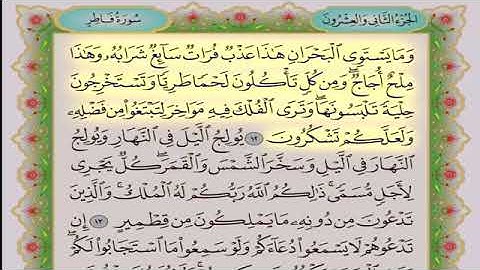 الجزء الثاني والعشرون
سورة فاطر
وَمَا يَسْتَوِي الْبَحْرَانِ هَٰذَا عَذْبٌ فُرَاتٌ سَائِغٌ شَرَابُهُ وَهَٰذَا
مِلْحٌ أُجَاجٌ ۖ وَمِن كُلٍّ تَأْكُلُونَ لَحْمًا طَرِيًّا وَتَسْتَخْرِجُونَ
حِلْيَةً تَلْبَسُونَهَا ۖ وَتَرَى الْفُلْكَ فِيهِ مَوَاخِرَ لِتَبْتَغُوا مِن فَضْلِهِ
وَلَعَلَّكُمْ تَشْكُرُونَ ۝١٢ يُولِجُ اللَّيْلَ فِي النَّهَارِ وَيُولِجُ
النَّهَارَ فِي اللَّيْلِ وَسَخَّرَ الشَّمْسَ وَالْقَمَرَ ۖ كُلٌّ يَجْرِي
لِأَجَلٍ مُّسَمًّى ۚ ذَٰلِكُمُ اللَّهُ رَبُّكُمْ لَهُ الْمُلْكُ ۚ وَالَّذِينَ
تَدْعُونَ مِن دُونِهِ مَا يَمْلِكُونَ مِن قِطْمِيرٍ ۝١٣ إِن
تَدْعُوهُمْ لَا يَسْمَعُوا دُعَاءَكُمْ وَلَوْ سَمِعُوا مَا اسْتَجَابُوا لَكُمْ ۖ